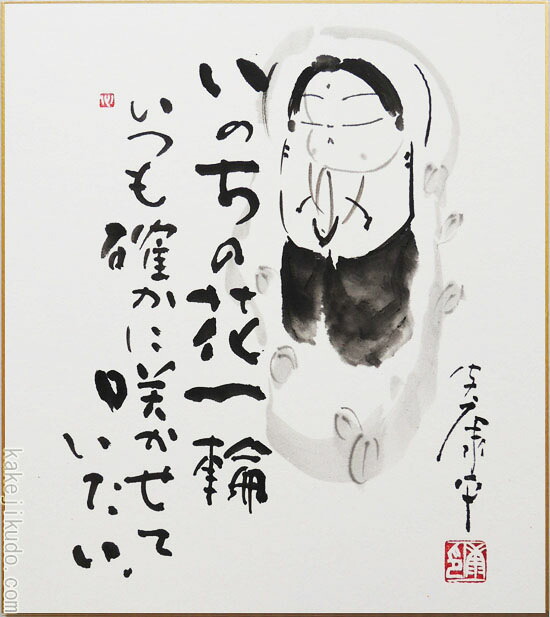 いのちの花一輪
いつも確かに咲かせて
いたい。
kakejikudo.com